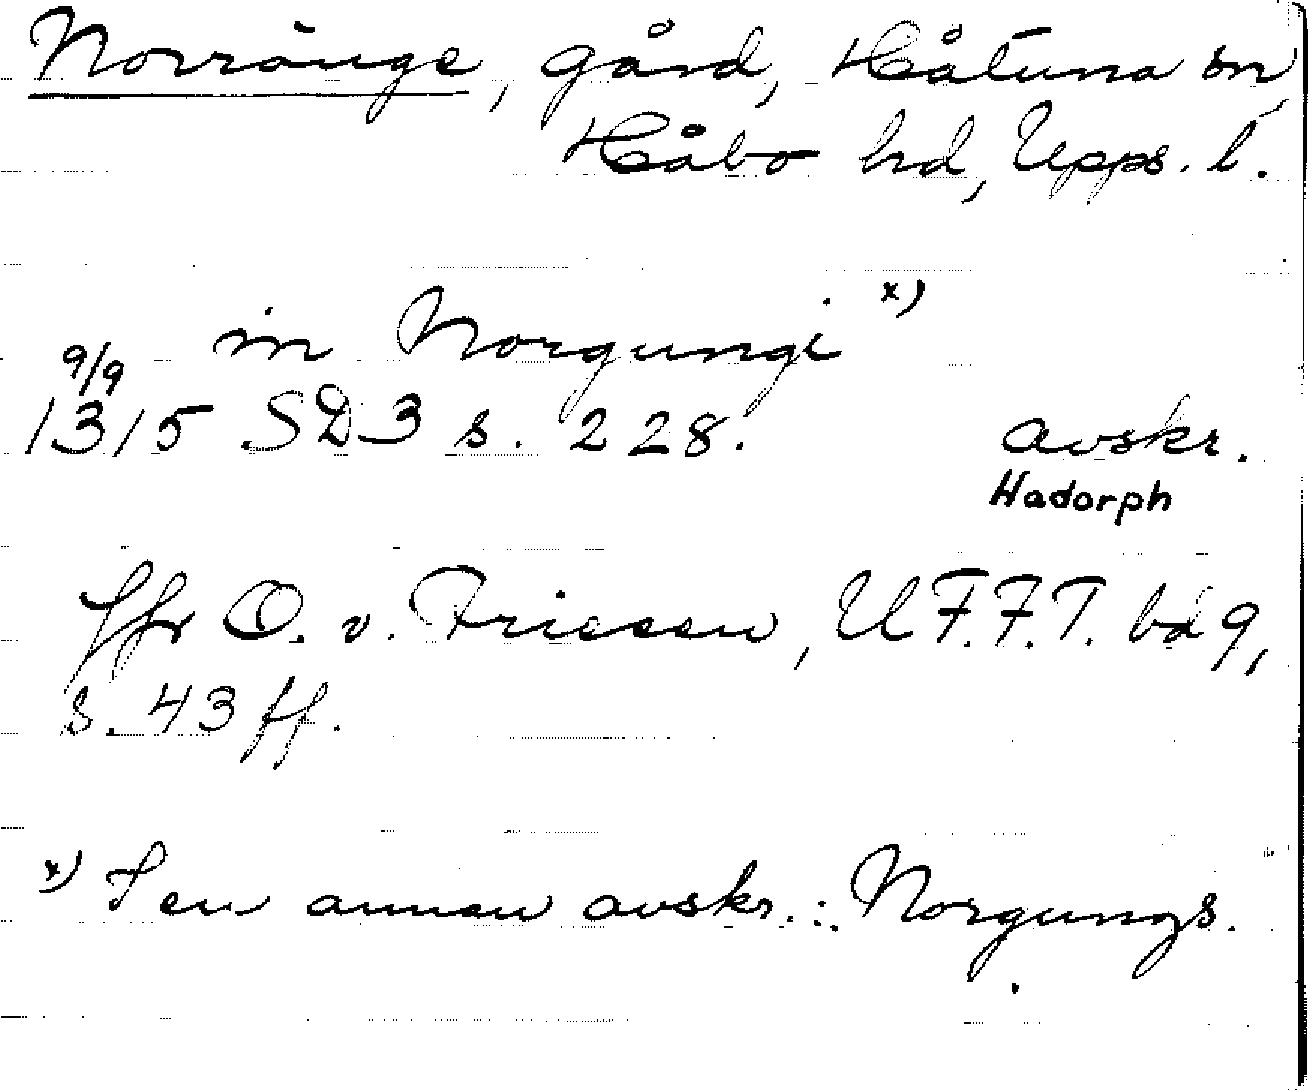 Norränge, gård, Håtuna sn,
Håbo hd, Upps. l.
in Norgungi x)
9/9
1315 SD 3 s. 228. avskr.
Hadorph
Jfr O. v. Friesen, UF.F.T. bd 9,
s. 43 ff.
x) I en annan avskr.: Norgungs.